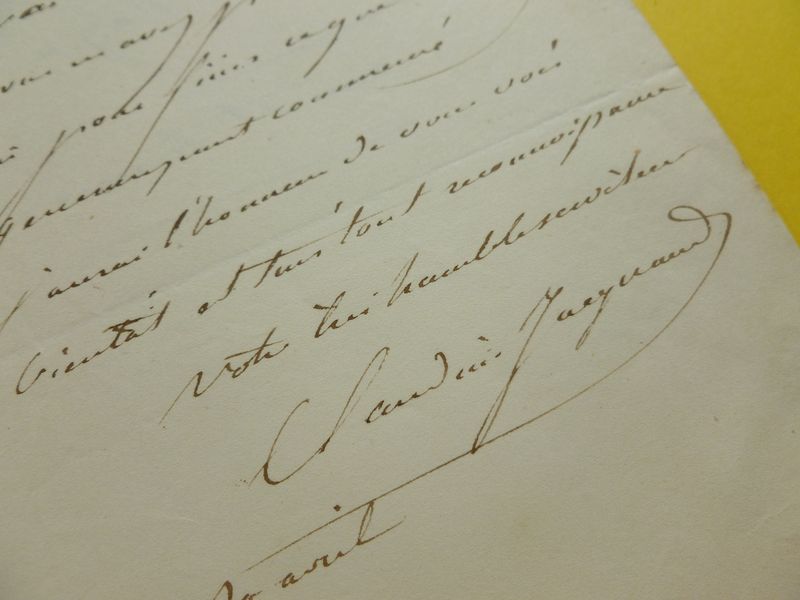 vous m'avez
pour finir ce que
généreusement commencé
j'aurai l'honneur de vous voir
bientôt et suis tout reconnoissant
votre très humble serviteur
Claudius Jacquand
30 avril